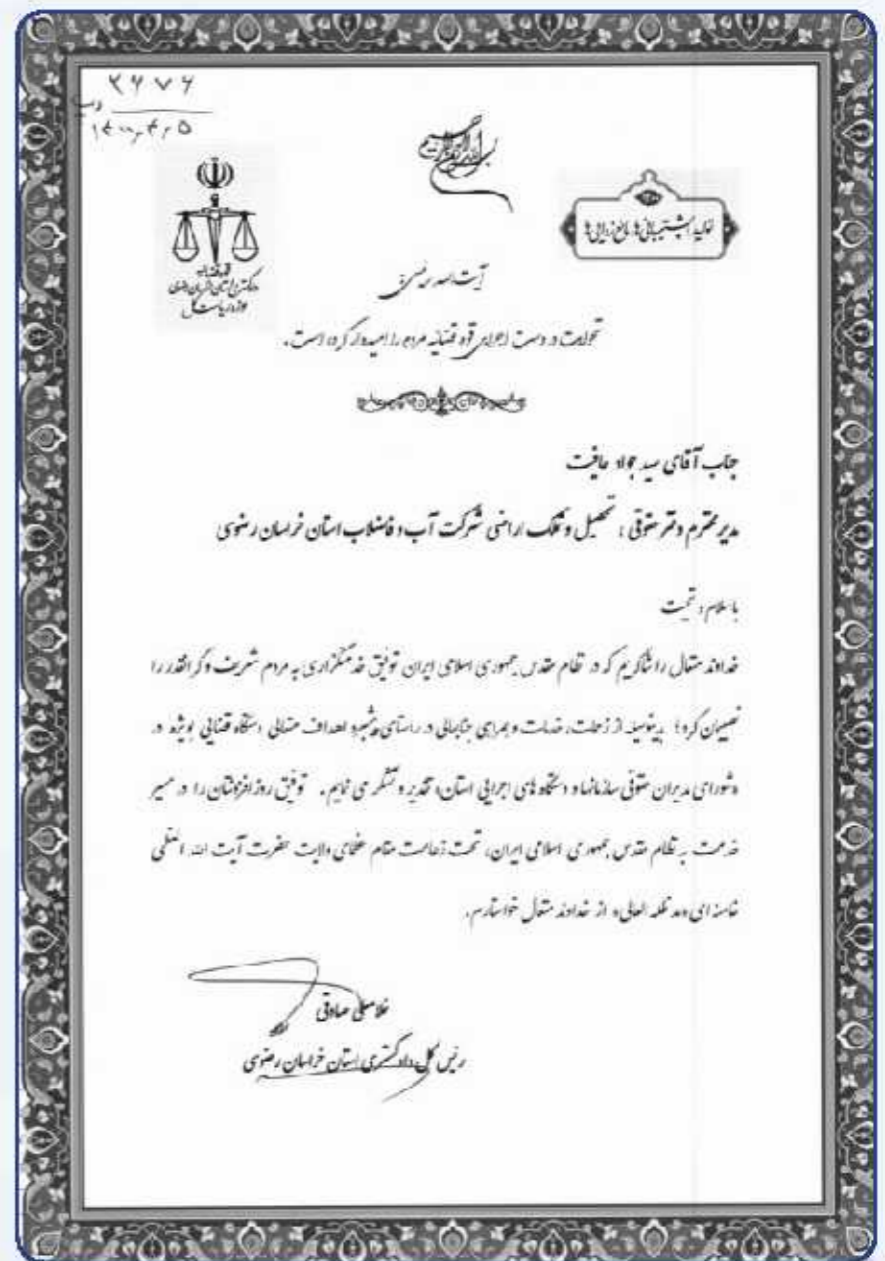 ۲۶۷۶
۱۴۰۰/۴/۵
بسم الله الرحمن الرحیم
تولید؛ پشتیبانی‌ها، مانع‌زدایی‌ها
قوه قضاییه
دادگستری استان خراسان رضوی
حوزه ریاست کل
آیت الله رئیسی:
تحولات در دست اجرای قوه قضائیه مردم را امیدوار کرده است.
جناب آقای سید جواد عافیت
مدیر محترم دفتر حقوقی، تحصیل و تملک اراضی شرکت آب و فاضلاب استان خراسان رضوی
با سلام و تحیت
خداوند متعال را شاکریم که در نظام مقدس جمهوری اسلامی ایران توفیق خدمتگزاری به مردم شریف و گرانقدر را
نصیبمان کرد؛ بدینوسیله از زحمات، خدمات و همراهی جنابعالی در راستای پیشبرد اهداف متعالی دستگاه قضایی بویژه در
«شورای مدیران حقوقی سازمانها و دستگاه های اجرایی استان» تقدیر و تشکر می نمایم. توفیق روزافزونتان را در مسیر
خدمت به نظام مقدس جمهوری اسلامی ایران، تحت زعامت مقام عظمای ولایت حضرت آیت الله العظمی
خامنه ای «مد ظله العالی» از خداوند متعال خواستارم.
غلامعلی صادقی
رئیس کل دادگستری استان خراسان رضوی